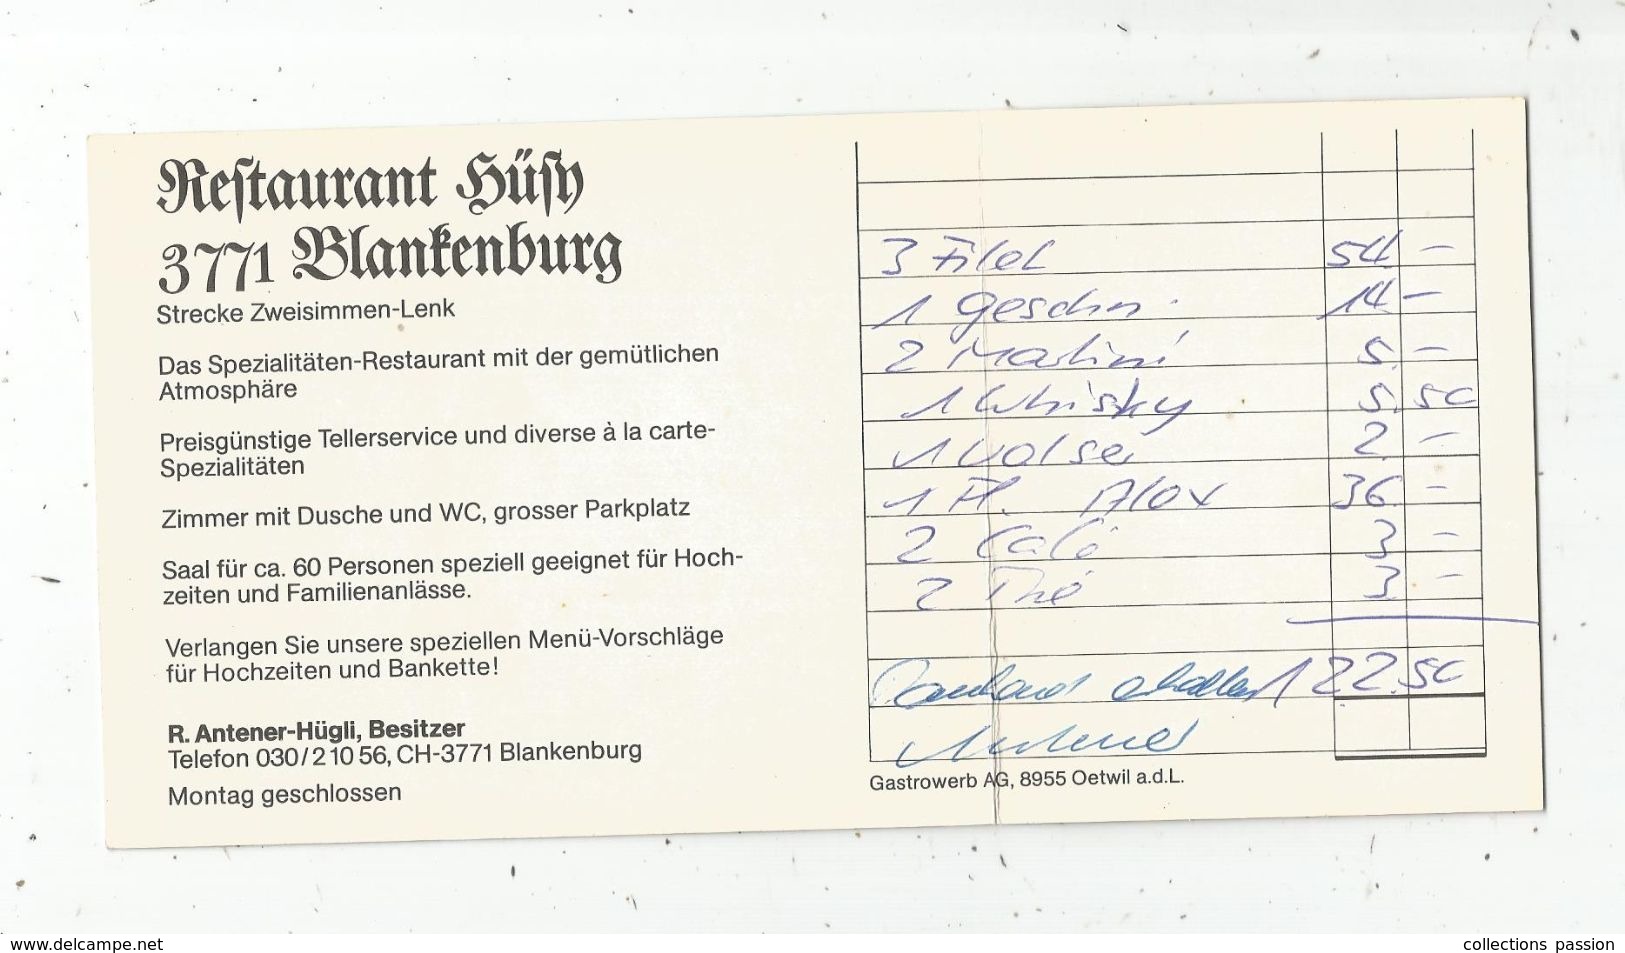 Restaurant Hüsy
3771 Blankenburg
Strecke Zweisimmen-Lenk
Das Spezialitäten-Restaurant mit der gemütlichen
Atmosphäre
Preisgünstige Tellerservice und diverse à la carte-
Spezialitäten
Zimmer mit Dusche und WC, grosser Parkplatz
Saal für ca. 60 Personen speziell geeignet für Hoch-
zeiten und Familienanlässe.
Verlangen Sie unsere speziellen Menü-Vorschläge
für Hochzeiten und Bankette!
R. Antener-Hügli, Besitzer
Telefon 030/2 10 56, CH-3771 Blankenburg
Montag geschlossen
3 Filet 54 –
1 geschn. 14 –
2 Martini 5. –
1 Whisky 5. 50
1 Valser 2. –
1 Fl. Alox 36. –
2 Café 3 –
2 Thé 3. –
Dankend erhalten 122.50
Antener
Gastrowerb AG, 8955 Oetwil a.d.L.
www.delcampe.net
collections passion